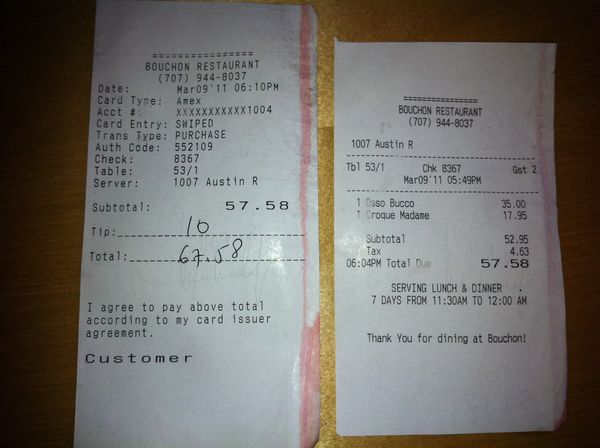 ================
BOUCHON RESTAURANT
(707) 944-8037
Date: Mar09'11 06:10PM
Card Type: Amex
Acct #: XXXXXXXXXXX1004
Card Entry: SWIPED
Trans Type: PURCHASE
Auth Code: 552109
Check: 8367
Table: 53/1
Server: 1007 Austin R
Subtotal: 57.58
Tip: 10
Total: 67.58
I agree to pay above total
according to my card issuer
agreement.
Customer
================
BOUCHON RESTAURANT
(707) 944-8037
1007 Austin R
Tbl 53/1 Chk 8367 Gst 2
Mar09'11 05:49PM
1 Osso Bucco 35.00
1 Croque Madame 17.95
Subtotal 52.95
Tax 4.63
06:04PM Total Due 57.58
SERVING LUNCH & DINNER .
7 DAYS FROM 11:30AM TO 12:00 AM
Thank You for dining at Bouchon!